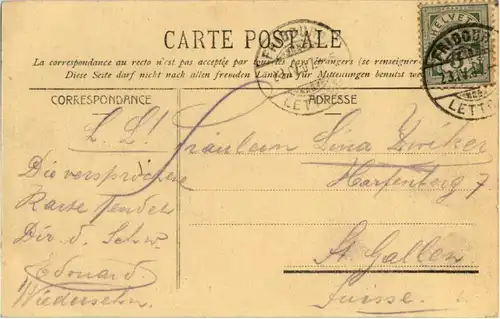 CARTE POSTALE
HELVETIA
FRIBOURG
LETTR
La correspondance au recto n'est pas acceptée par tous les pays étrangers (se renseigner
Diese Seite darf nicht nach allen fremden Ländern für Mitteilungen benutzt we
CORRESPONDANCE
ADRESSE
L. L!
Fräulein Lina
Die versprochene
Karte sendet
Dir d. Schw.
Edouard
Wiedersehn.
7
St. Gallen
Suisse.